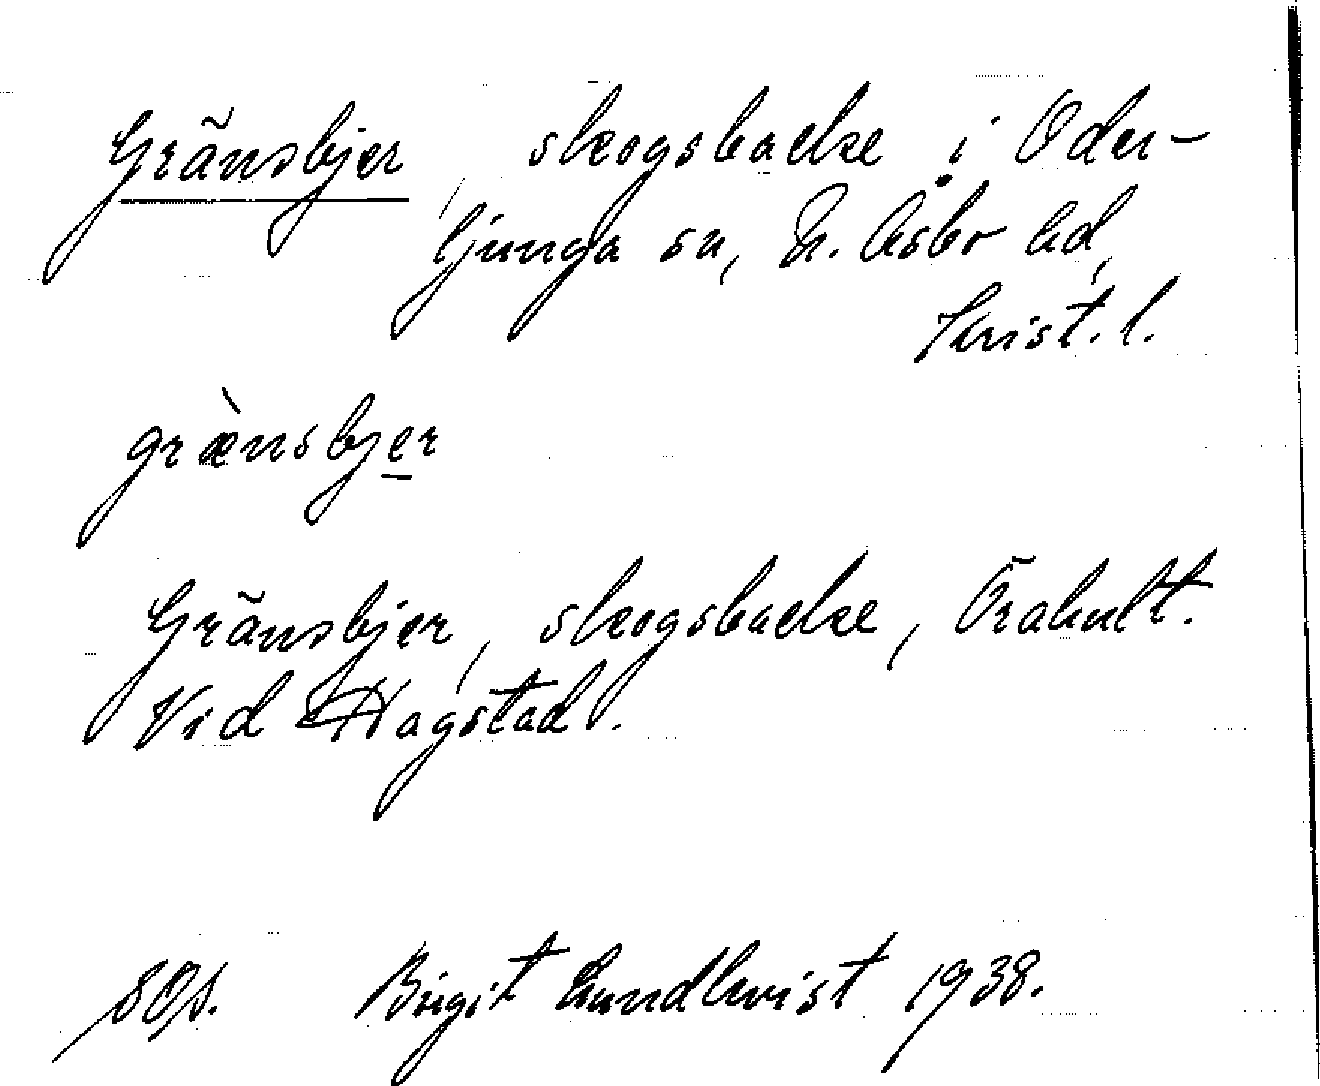 Gränsbjer, skogsbacke i Oder-
ljunga sn, N. Åsbo hd,
Krist. l.
grænsbjer
Gränsbjer, skogsbacke, Örahult.
Vid Hagstad.
Birgit Lundkvist 1938.